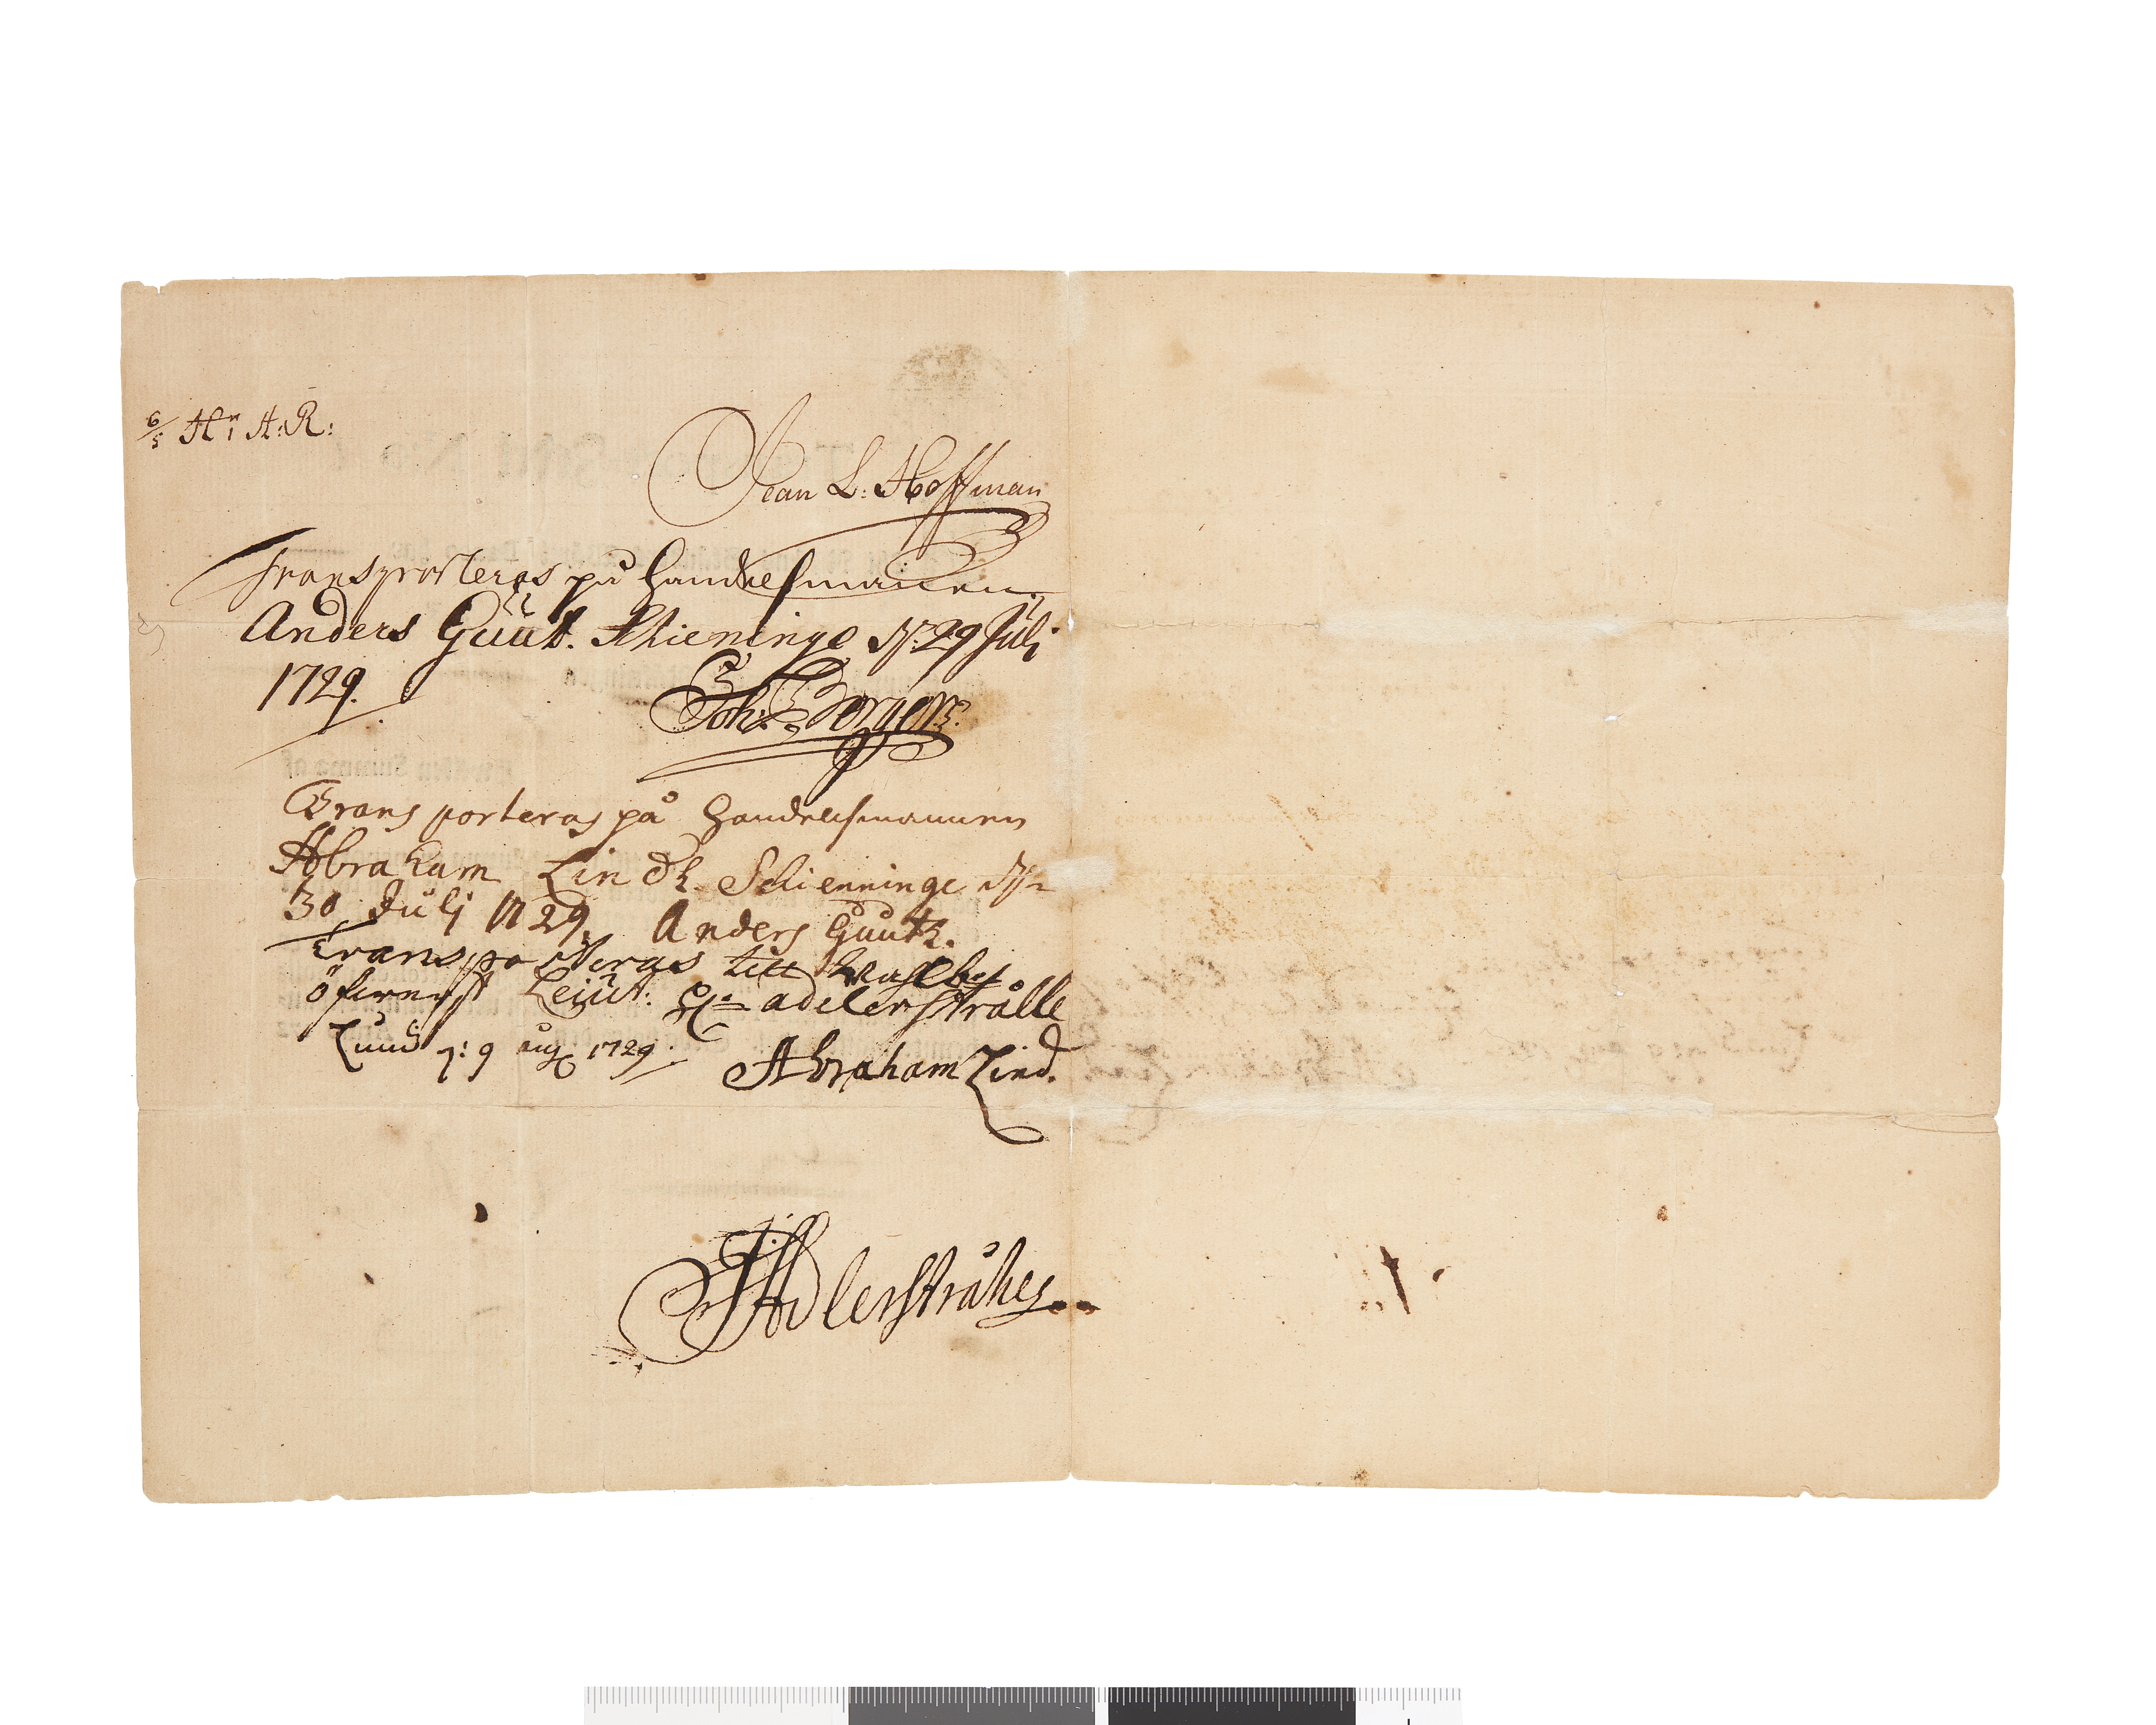 6/5 Hr A:R:
Jean L: Hoffman
Transporteras på handelsmannen
Anders Guut. Skieninge d. 29 Juli
1729.
Joh: Borgen
Transporteras på Handelsmannen
Abraham Lindh. Schienninge d.
30 Julj 1729. Anders Guutz.
Transporteras till wahlbet
öfwerst Leiut: H. adelerstrålle
Lund d: 9 aug 1729.
Abraham Lind.
Adlerstråhes